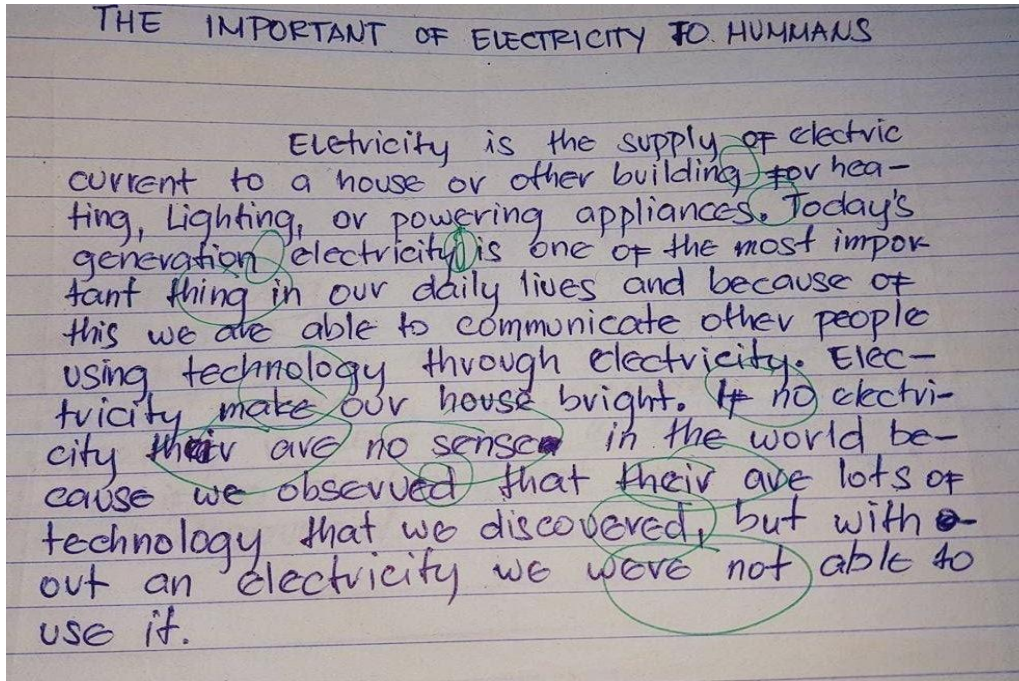 THE IMPORTANT OF ELECTRICITY TO HUMMANS
Eletricity is the supply of electric
current to a house or other building for hea-
ting, Lighting, or powering appliances. Today's
generation electricity is one of the most impor-
tant thing in our daily lives and because of
this we are able to communicate other people
using technology through electricity. Elec-
tricity make our house bright. If no electri-
city their are no sense in the world be-
cause we observed that their are lots of
technology that we discovered, but with-
out an electricity we were not able to
use it.